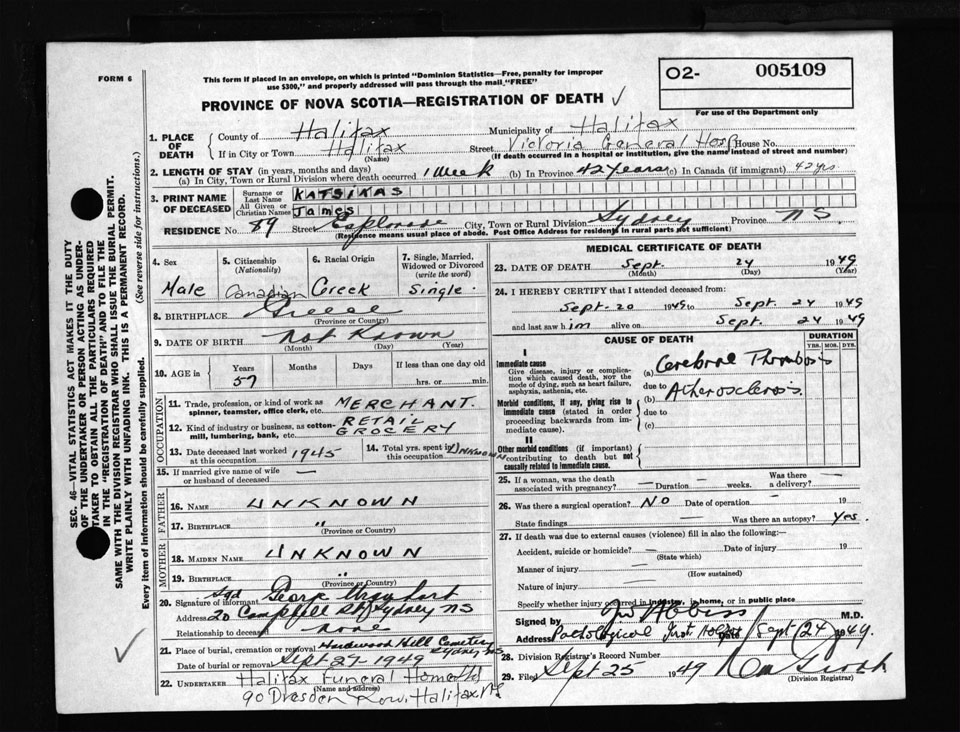 FORM 6
This form if placed in an envelope, on which is printed "Dominion Statistics—Free, penalty for improper
use $300," and property addressed will pass through the mail "FREE"
PROVINCE OF NOVA SCOTIA—REGISTRATION OF DEATH ✓
O2- 005109
For use of the Department only
1. PLACE OF DEATH
County of Halifax Municipality of Halifax
If in City or Town Halifax Street Victoria General Hosp House No.
(Name) (If death occurred in a hospital or institution, give the name instead of street and number)
2. LENGTH OF STAY (in years, months and days)
(a) In City, Town or Rural Division where death occurred 1 Week (b) In Province 42 years (c) In Canada (if immigrant) 42 yrs
3. PRINT NAME OF DECEASED
Surname or Last Name KATSIKAS
All Given or Christian Names James
RESIDENCE No. 89 Street City, Town or Rural Division Sydney Province N.S.
(Residence means usual place of abode. Post Office Address for residents in rural parts not sufficient)
4. Sex Male
5. Citizenship (Nationality) Canadian
6. Racial Origin Greek
7. Single, Married, Widowed or Divorced (write the word) Single.
8. BIRTHPLACE Greece
(Province or Country)
9. DATE OF BIRTH Not Known
(Month) (Day) (Year)
10. AGE in Years 57 Months Days If less than one day old hrs. or min.
OCCUPATION
11. Trade, profession, or kind of work as spinner, teamster, office clerk, etc. MERCHANT.
12. Kind of industry or business, as cotton-mill, lumbering, bank, etc. RETAIL GROCERY
13. Date deceased last worked at this occupation 1945
14. Total yrs. spent in this occupation UNKNOWN
15. If married give name of wife or husband of deceased —
FATHER
16. NAME UNKNOWN
17. BIRTHPLACE "
(Province or Country)
MOTHER
18. MAIDEN NAME UNKNOWN
19. BIRTHPLACE "
(Province or Country)
20. Signature of informant Sgd George Urquhart
Address 20 Campbell St Sydney NS
Relationship to deceased none
21. Place of burial, cremation or removal Hardwood Hill Cemetery Sydney NS
Date of burial or removal Sept 27-1949
22. UNDERTAKER Halifax Funeral Home Ltd
(Name and address)
90 Dresden Row, Halifax, NS
MEDICAL CERTIFICATE OF DEATH
23. DATE OF DEATH Sept. 24 1949
(Month) (Day) (Year)
24. I HEREBY CERTIFY that I attended deceased from:
Sept. 20 1949 to Sept. 24 1949
and last saw him alive on Sept. 24 1949
CAUSE OF DEATH DURATION
YRS. MOS. DYS.
I
Immediate cause
Give disease, injury or complication which caused death, not the mode of dying, such as heart failure, asphyxia, asthenia, etc.
(a) Cerebral Thrombosis
due to
Morbid conditions, if any, giving rise to immediate cause (stated in order proceeding backwards from immediate cause).
(b) Atherosclerosis
due to
(c)
II
Other morbid conditions (if important) contributing to death but not causally related to immediate cause.
25. If a woman, was the death associated with pregnancy? — Duration — weeks. Was there a delivery? —
26. Was there a surgical operation? NO Date of operation — 19
State findings — Was there an autopsy? Yes.
27. If death was due to external causes (violence) fill in also the following:—
Accident, suicide or homicide? — Date of injury 19
(State which)
Manner of injury —
(How sustained)
Nature of injury —
Specify whether injury occurred in industry, in home, or in public place
Signed by M.D.
Address Pathological Inst. Date Sept (24) 1949.
28. Division Registrar's Record Number
29. Filed Sept 25 1949
(Division Registrar)
SEC. 46—VITAL STATISTICS ACT MAKES IT THE DUTY
OF THE UNDERTAKER OR PERSON ACTING AS UNDER-
TAKER TO OBTAIN ALL THE PARTICULARS REQUIRED
IN THE "REGISTRATION OF DEATH" AND TO FILE THE
SAME WITH THE DIVISION REGISTRAR WHO SHALL ISSUE THE BURIAL PERMIT.
WRITE PLAINLY WITH UNFADING INK. THIS IS A PERMANENT RECORD.
Every item of information should be carefully supplied. (See reverse side for instructions.)